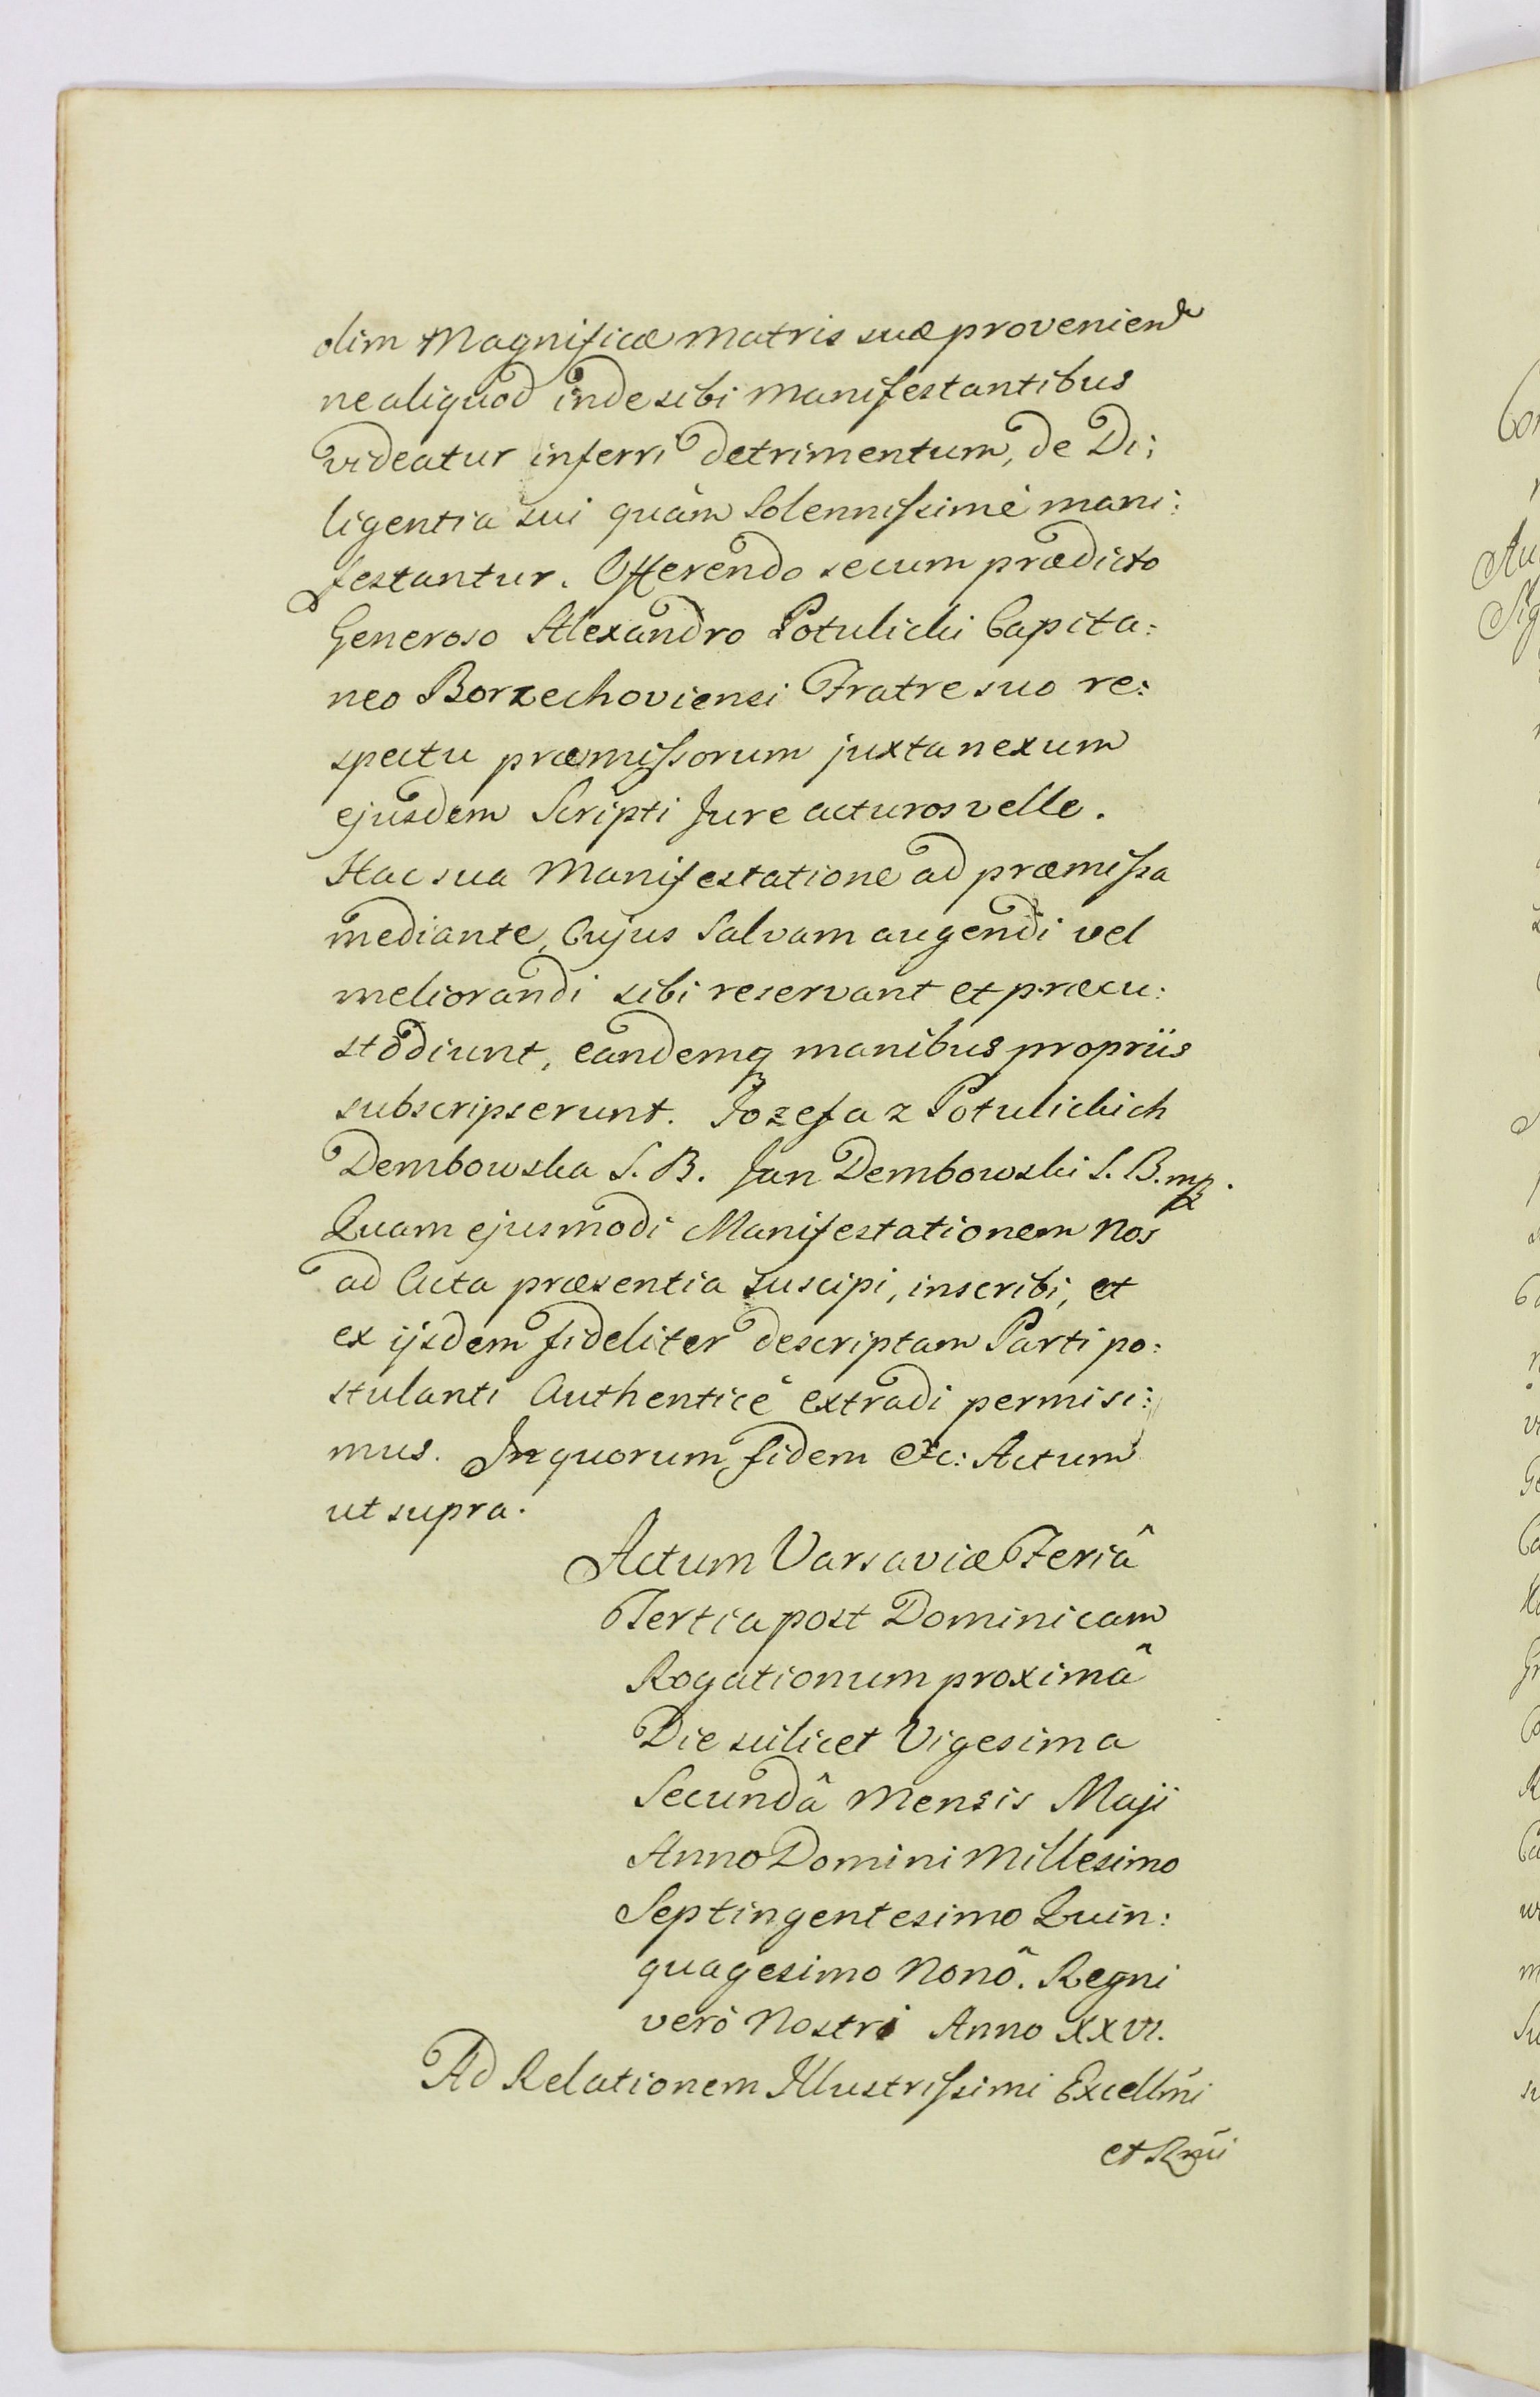 olim Magnificæ Matris suæ provenien
ne aliquod inde sibi Manifestantibus
videatur inferri detrimentum, de Di:
ligentia sui quàm Solennissimè mani:
festantur. Offerendo secum prædicto
Generoso Alexandro Potulicki Capita:
neo Borzechoviensi Fratre suo re:
spectu præmissorum juxta nexum
ejusdem Scripti Jure acturos velle.
Hac sua Manifestatione ad præmissa
mediante, Cujus Salvam augendi vel
meliorandi sibi reservant et præcu:
stodiunt, eandemq manibus propriis
subscripserunt. Jozefa z Potulickich
Dembowska S. B. Jan Dembowski S. B. mp.
Quam ejusmodi Manifestationem Nos
ad Acta præsentia suscipi, inscribi, et
ex ijsdem fideliter descriptam Parti po:
stulanti Authenticè extradi permisi:
mus. In quorum fidem etc: Actum
ut supra.
Actum Varsaviæ Feriâ
Tertia post Dominicam
Rogationum proximâ
Die scilicet Vigesima
Secundâ Mensis Maji
Anno Domini Millesimo
Septingentesimo Quin:
quagesimo Nonô. Regni
verò Nostri Anno XXVI.
Ad Relationem Illustrissimi Excellmi
et Rmi